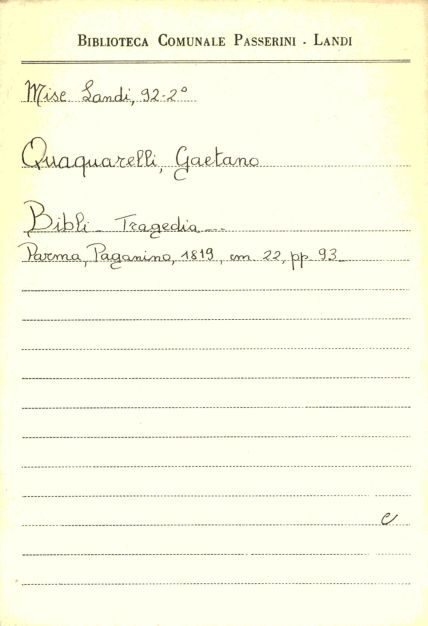 BIBLIOTECA COMUNALE PASSERINI - LANDI
Misc. Landi, 92-2°
Quaquarelli, Gaetano
Bibli - Tragedia...
Parma, Paganino, 1819, cm. 22, pp. 93_
C